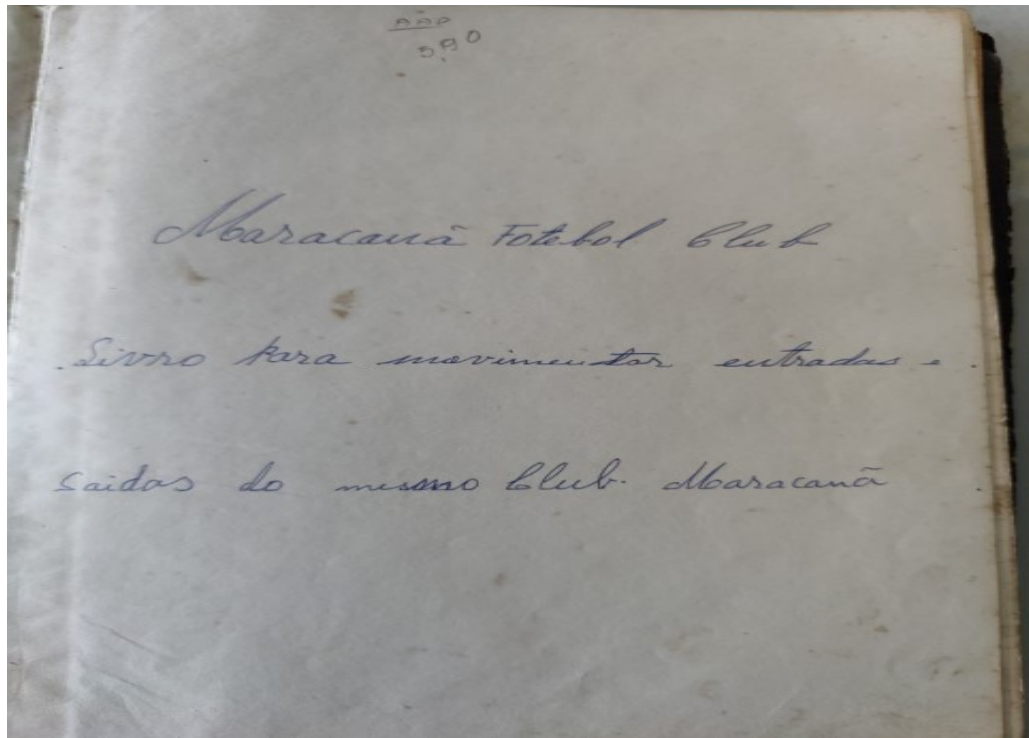 Maracanã Fotebol Club
Livro para movimentar entradas e
saidas do mesmo Club. Maracanã